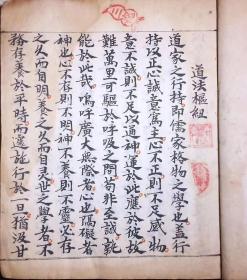 道法樞紐
道家之行持即儒家格物之學也蓋行
持以正心誠意爲主心不正則不足感物
意不誠則不足以通神神運於此應於彼故
雖萬里可驅於呼吸之間苟非至誠孰
能於此哉嗚呼廣大無際者心也隔礙者
神也心不存則不明神不養則不靈必存
之久而自明養之久而自靈世之學者不
務存養於平時而遽施行於一旦猶汲甘